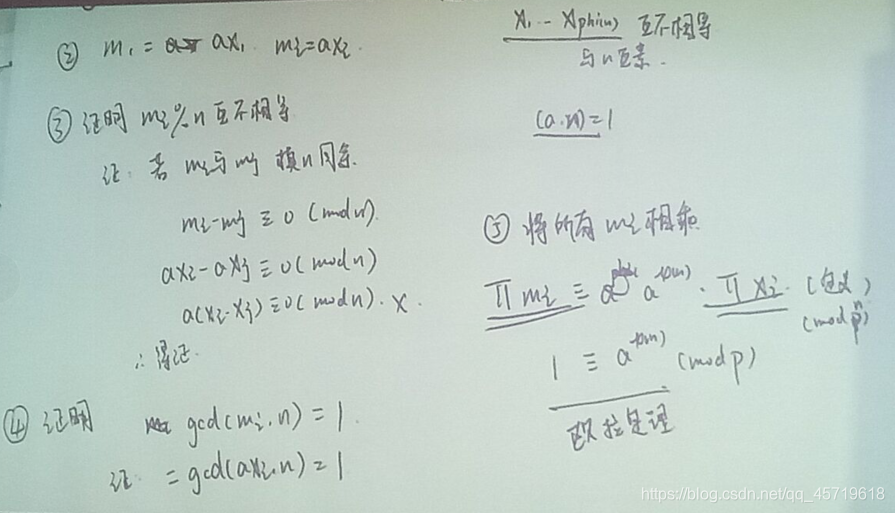 ② m₁ = ax₁. mi=axi.
③ 证明 mi%n 互不相等
证: 若 mi与mj 模n同余.
mi-mj ≡ 0 (mod n).
axi-axj ≡ 0 (mod n)
a(xi-xj) ≡ 0 (mod n). ×.
∴ 得证.
④ 证明 gcd(mi, n) = 1
证 = gcd(axi, n) = 1
x₁ -- xphi(n) 互不相等
与n互素.
(a.n) = 1
⑤ 将所有 mi 相乘
∏ mi ≡ a · ∏ xi
1 ≡ a (mod p)
欧拉定理
https://blog.csdn.net/qq_45719618